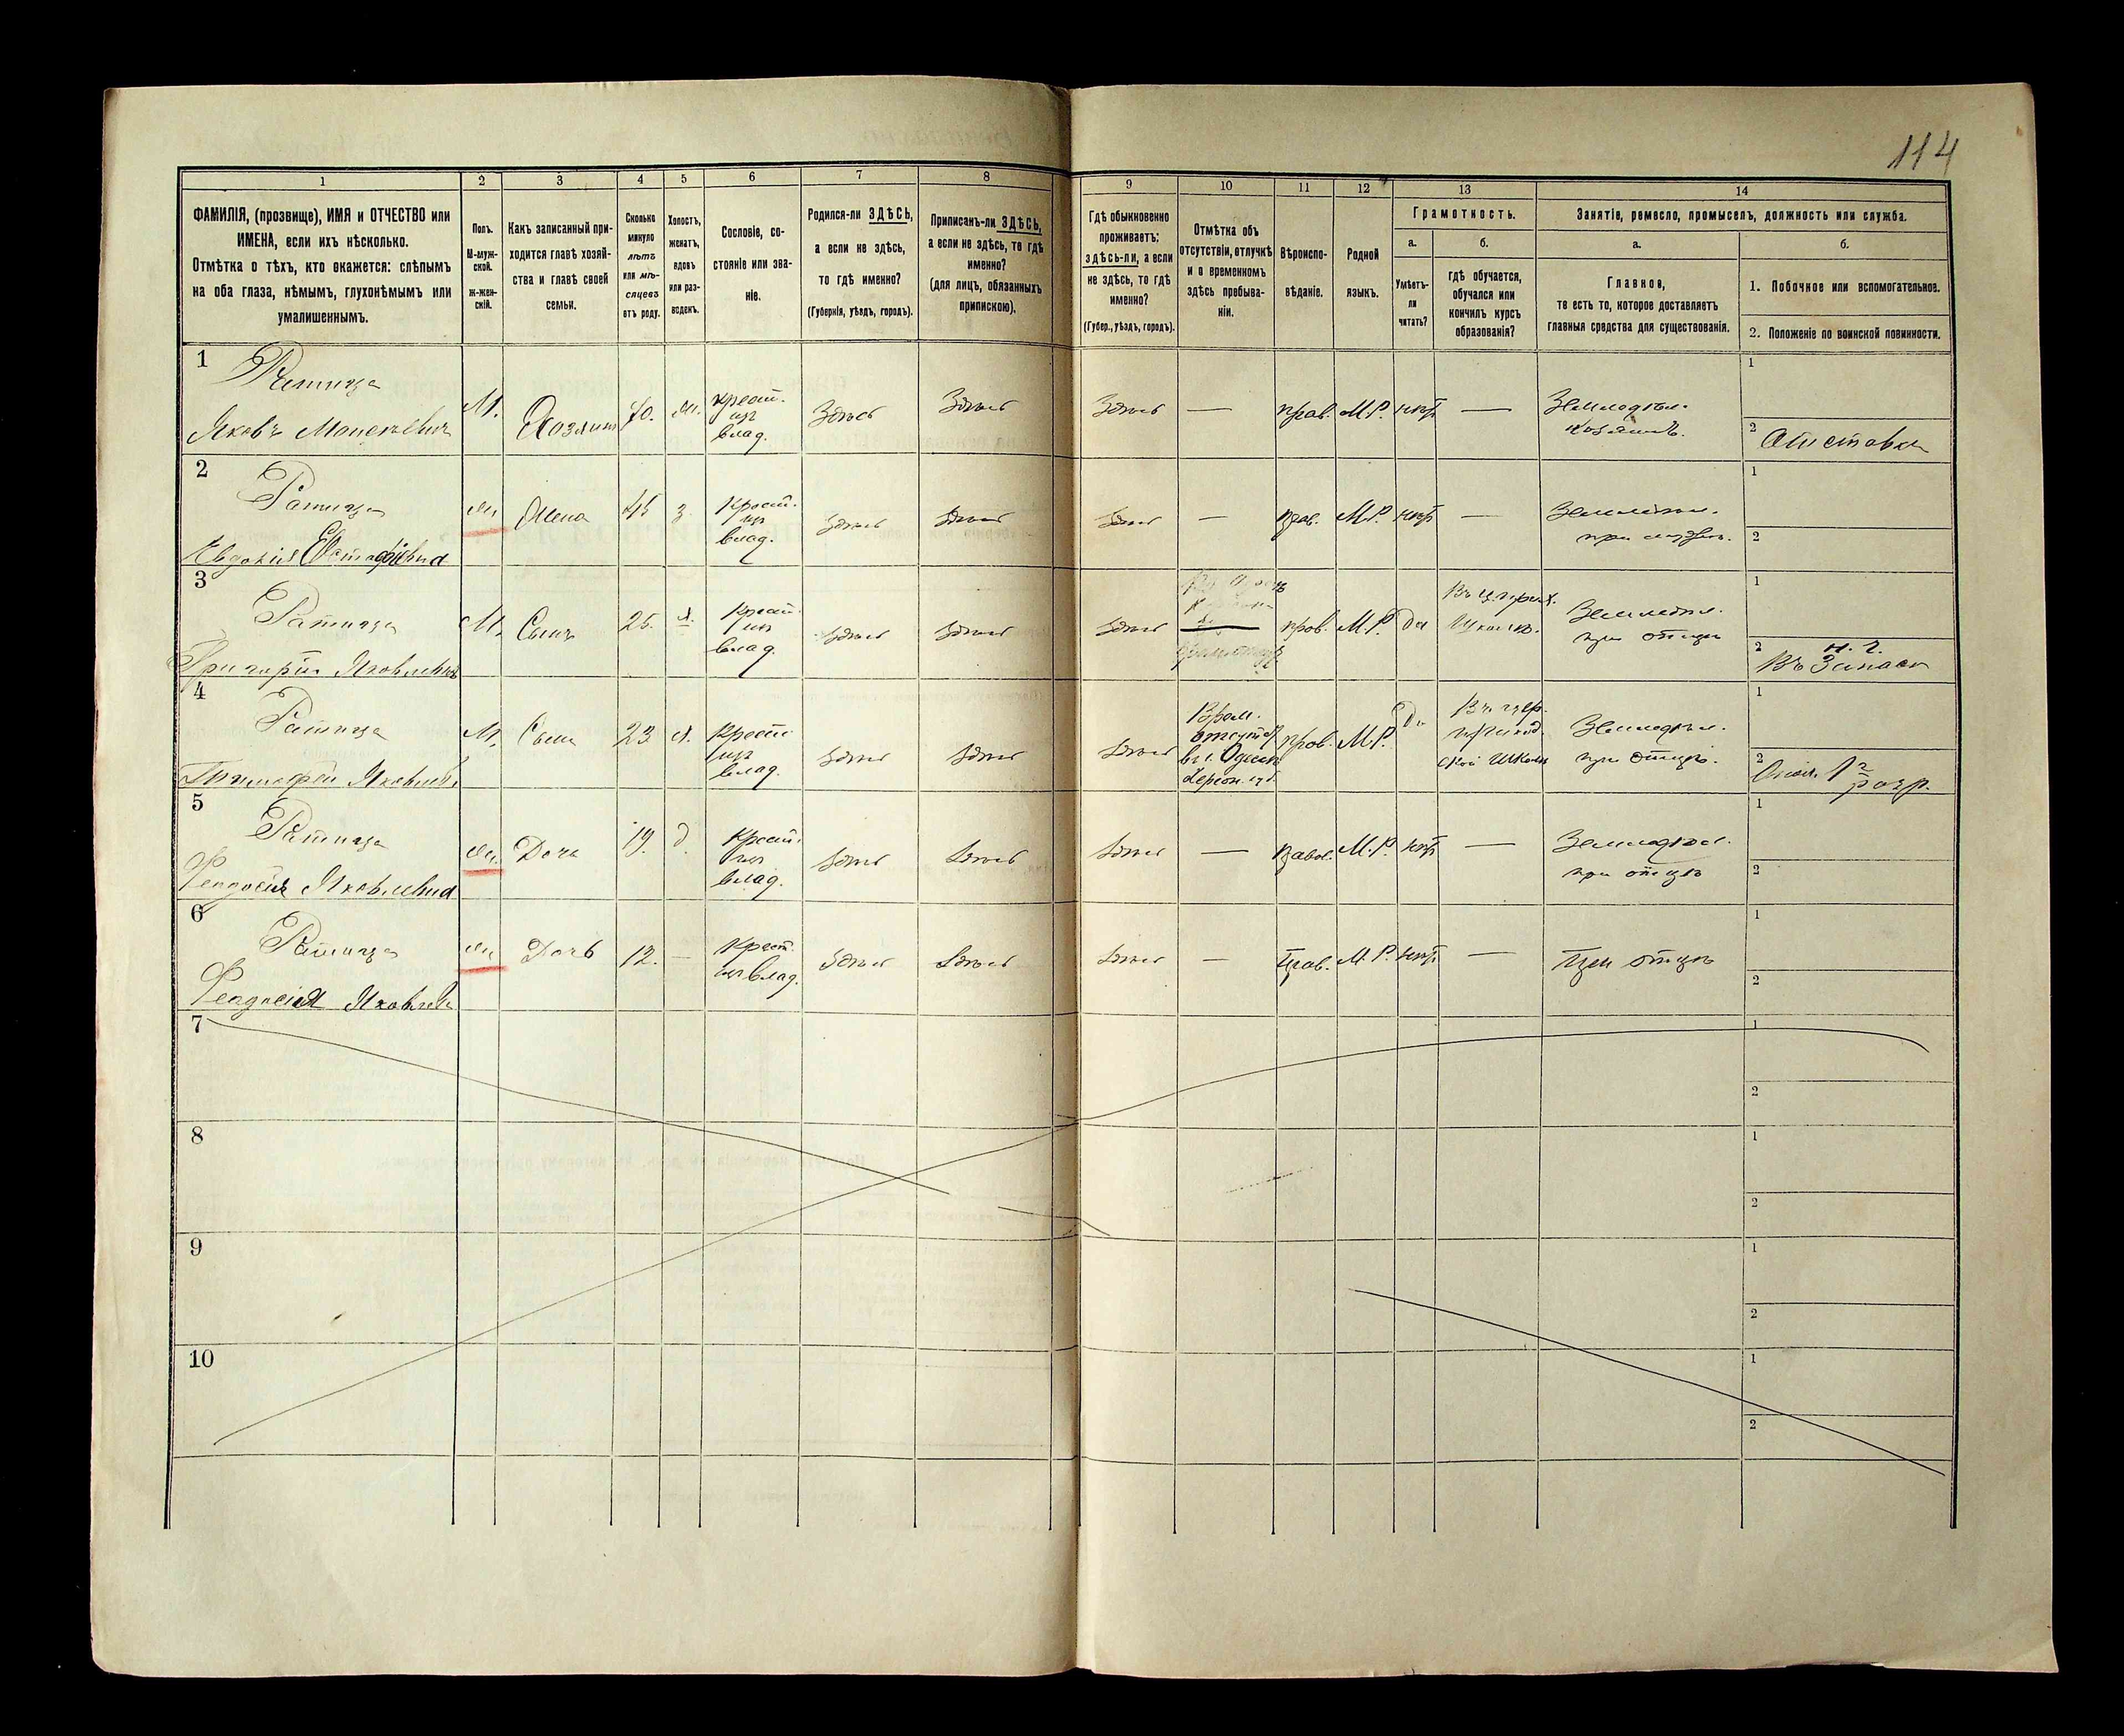 114
1
2
3
4
5
6
7
8
9
10
11
12
13
14
ФАМИЛІЯ, (прозвище), ИМЯ и ОТЧЕСТВО или
ИМЕНА, если ихъ нѣсколько.
Отмѣтка о тѣхъ, кто окажется: слѣпымъ
на оба глаза, нѣмымъ, глухонѣмымъ или
умалишеннымъ.
Полъ.
М-муж-
ской.
ж-жен-
скій.
Какъ записанный при-
ходится главѣ хозяй-
ства и главѣ своей
семьи.
Сколько
минуло
лѣтъ
или мѣ-
сяцевъ
отъ роду.
Холостъ,
женатъ,
вдовъ
или раз-
веденъ.
Сословіе, со-
стояніе или зва-
ніе.
Родился-ли ЗДѢСЬ,
а если не здѣсь,
то гдѣ именно?
(Губернія, уѣздъ, городъ).
Приписанъ-ли ЗДѢСЬ,
а если не здѣсь, то гдѣ
именно?
(для лицъ, обязанныхъ
припискою).
Гдѣ обыкновенно
проживаетъ:
здѣсь-ли, а если
не здѣсь, то гдѣ
именно?
(Губер., уѣздъ, городъ).
Отмѣтка объ
отсутствіи, отлучкѣ
и о временномъ
здѣсь пребыва-
ніи.
Вѣроиспо-
вѣданіе.
Родной
языкъ.
Грамотность.
а.
Умѣетъ-
ли
читать?
б.
гдѣ обучается,
обучался или
кончилъ курсъ
образованія?
Занятіе, ремесло, промыселъ, должность или служба.
а.
Главное,
то есть то, которое доставляетъ
главныя средства для существованія.
б.
1. Побочное или вспомогательное.
2. Положеніе по воинской повинности.
1
Ратица
Яковъ
М.
Хозяинъ
70.
крест.
изъ
влад.
Здѣсь
Здѣсь
Здѣсь
—
прав.
М.Р.
нѣт
—
Земледѣл.
хозяинъ.
1
2
2
Ратица
Евдокія Евстафіевна
Жена
45
з.
Крест.
изъ
влад.
Здѣсь
Здѣсь
Здѣсь
—
прав.
М.Р.
нѣт
—
Земледѣл.
при мужѣ.
1
2
3
Ратица
Григорій Яковлевъ
М.
Сынъ
25.
х.
Крест.
изъ
влад.
Здѣсь
Здѣсь
Здѣсь
прав.
М.Р.
да
Земледѣл.
при отцѣ
1
2
Въ Запасѣ
4
Ратица
Тимофей Яковлевъ
М.
Сынъ
23
х.
Крест.
изъ
влад.
Здѣсь
Здѣсь
Здѣсь
Врем.
отсутс.
в г. Одессѣ
Херсон. губ.
прав.
М.Р.
Да
Въ цер.
приход.
ской школѣ
Земледѣл.
при отцѣ.
1
2
1 разр.
5
Ратица
Феодосія Яковлевна
Дочь
19.
д.
Крест.
изъ
влад.
Здѣсь
Здѣсь
Здѣсь
—
прав.
М.Р.
нѣт
—
Земледѣл.
при отцѣ
1
2
6
Ратица
Феодосія Яковлевна
Дочь
12.
—
Крест.
изъ влад.
Здѣсь
Здѣсь
Здѣсь
—
прав.
М.Р.
нѣт
—
При отцѣ
1
2
7
1
2
8
1
2
9
1
2
10
1
2